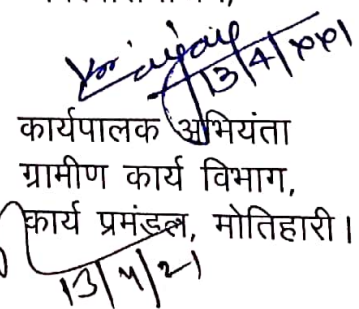 13/4/2021
कार्यपालक अभियंता
ग्रामीण कार्य विभाग,
कार्य प्रमंडल, मोतिहारी।
13/4/21